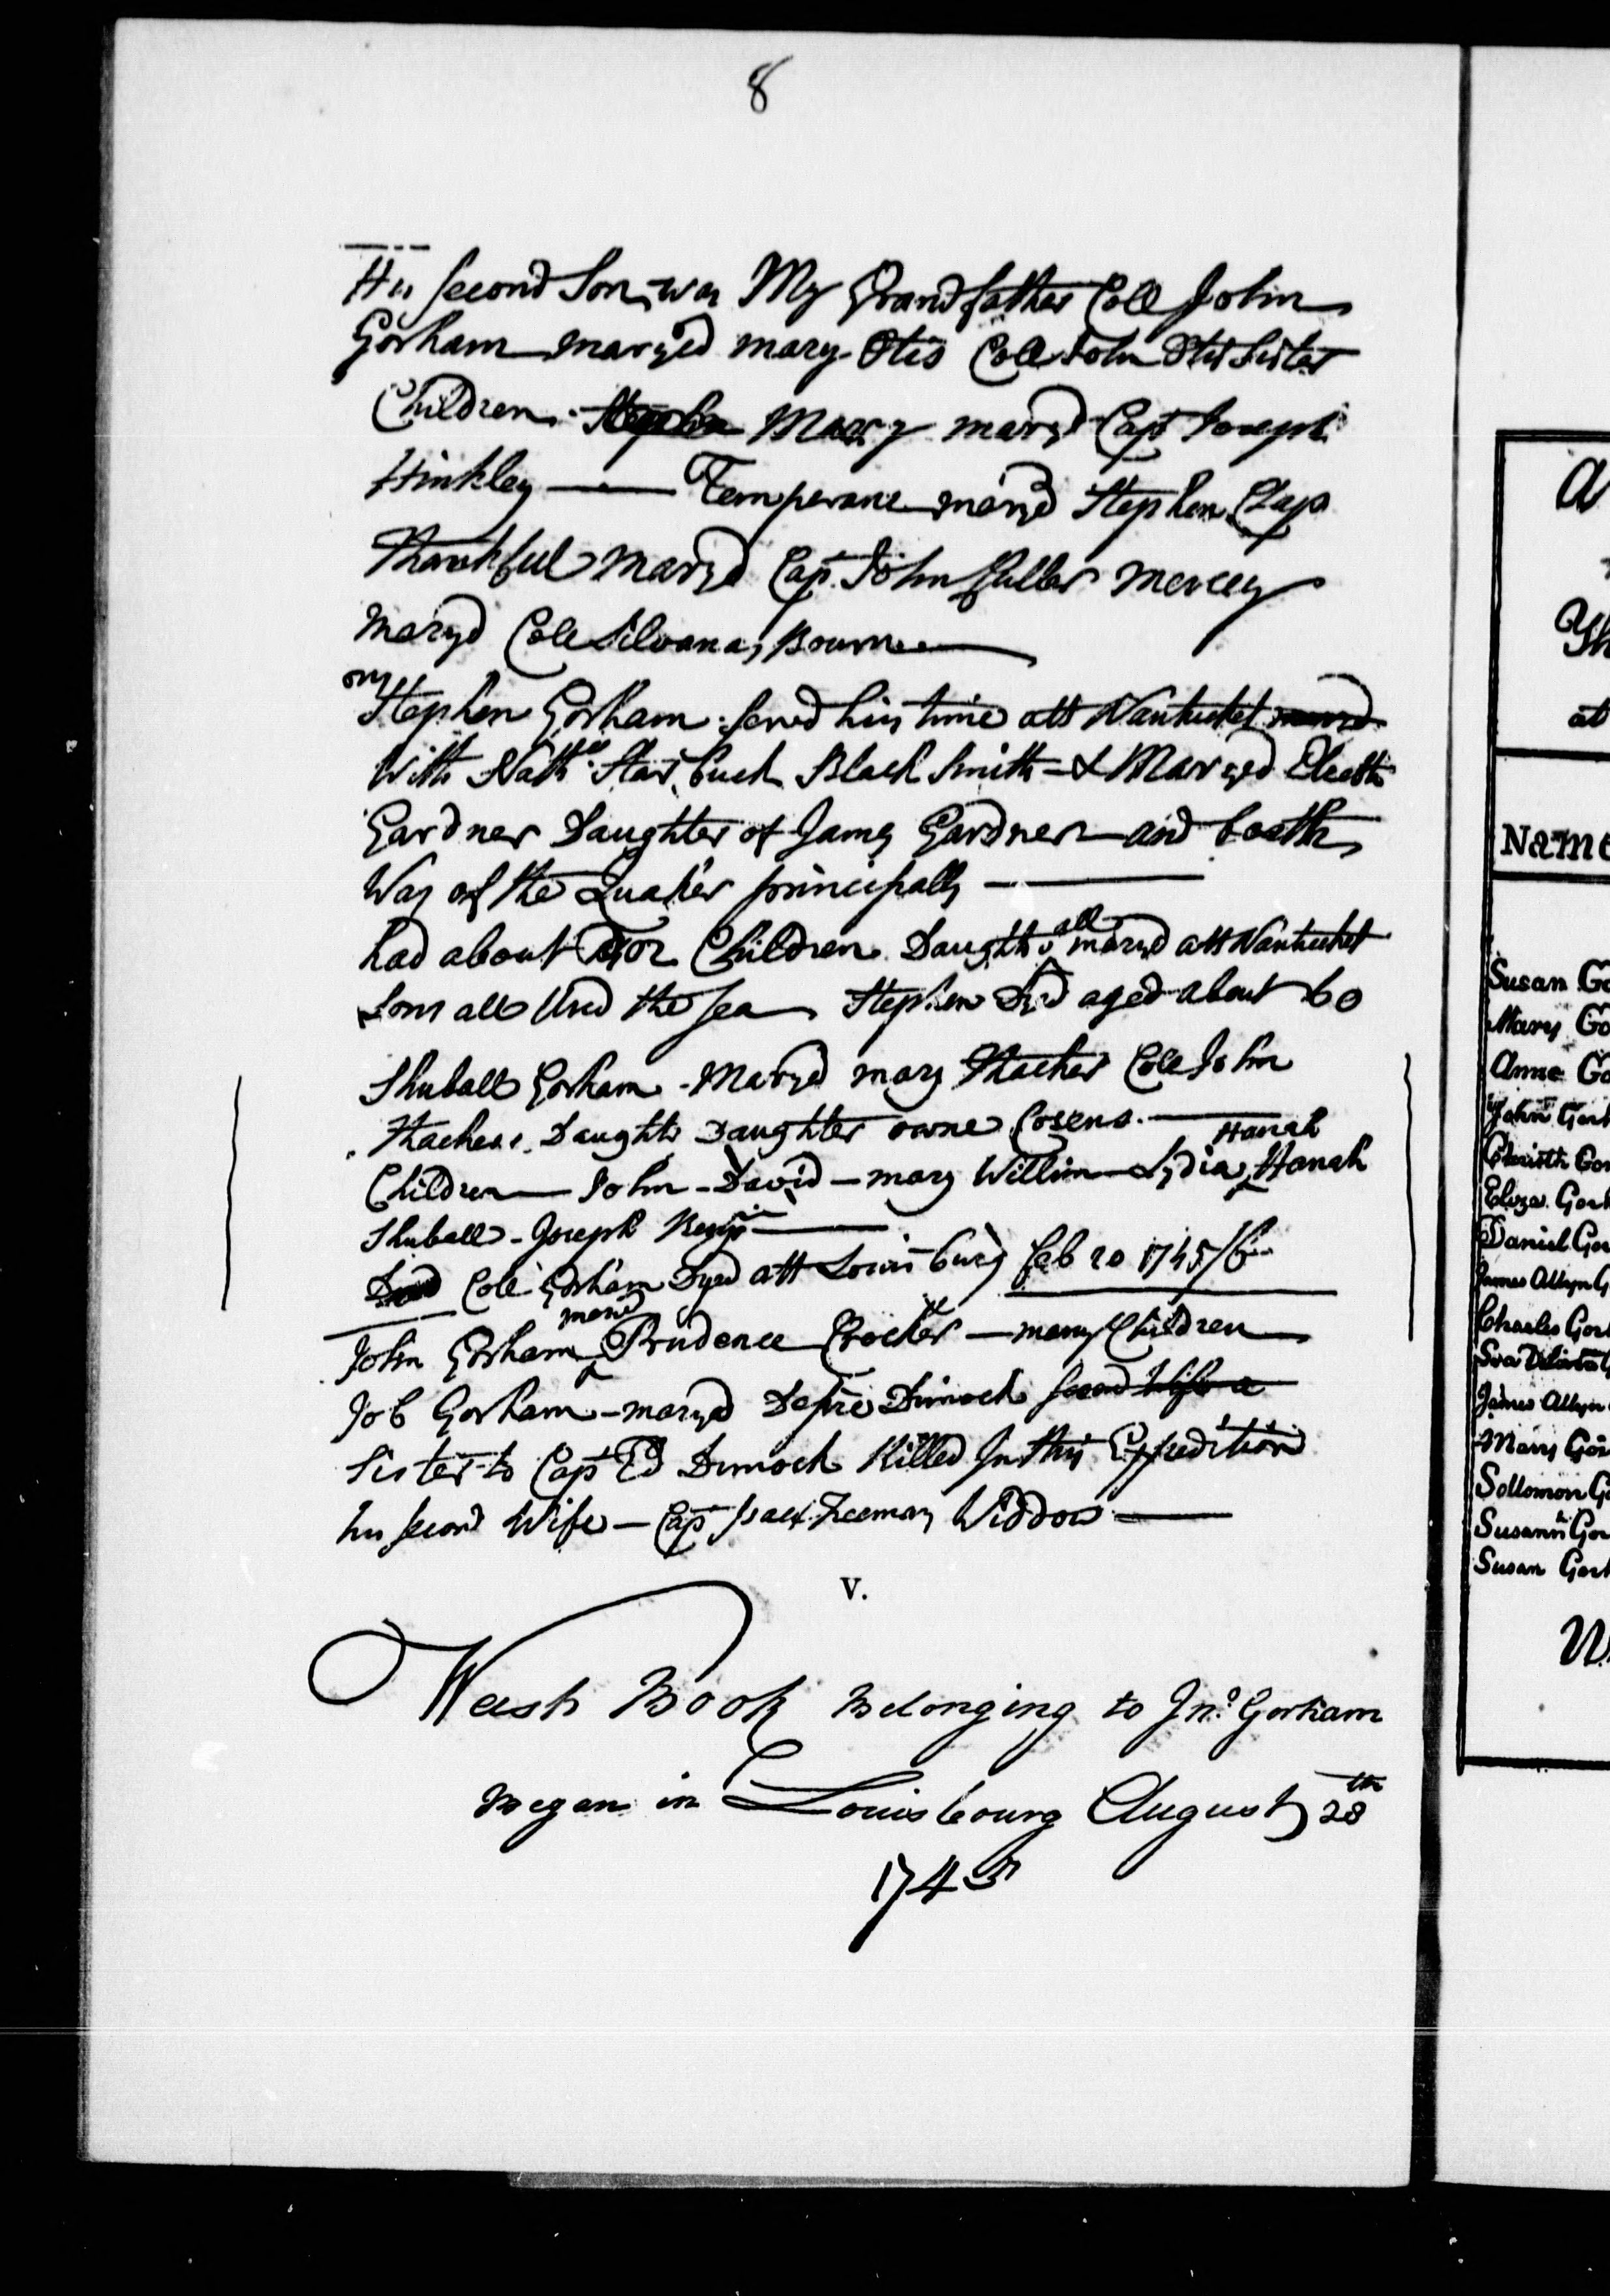 8
His second Son, was My Grandfather Coll John
Gorham maryed mary Otis Coll John Otis Sister
Children. Stephen Mary maryd Capt Joseph
Hinkley — Temperance maryd Stephen Clap
Thankful maryd Cap. John Fuller mercey
maryd Coll Silvanas Bourne —
my
Stephen Gorham served his time att Nantucket maryd
With Nath:ll Starbuck Black Smith - & Maryed Elesth
Gardner Daughter of James Gardner and boath
Way of the Quaker principally —
had about Children Daughts all maryd att Nantucket
Sons all Used the Sea Stephen Dyd aged about 60
Shuball Gorham - Maryd mary Thacher Coll John
Thachers Daughtr Daughter owne Cosens. —
Hanah
Children — John - David - mary William Lydia, Hanah
Shuball - Joseph Benj —
Died Coll Gorham Dyed att Louisburg Feb 20 1745/6
maryd
John Gorham Prudence Crocker — many Children
Job Gorham - maryd Desire Dimock second Wife a
Sister to Cap Ed Dimock Killed In this Expedition
his second Wife — Cap Isaac Freeman Widdow —
V.
Wast Book Belonging to Jno. Gorham
Began in Louisbourg August 28th
1745
A
at
Name
Susan Go
Mary Go
Anne Go
John Gorh
Eliza. Gorh
Daniel Go
James Allyn G
Charles Gor
James Allyn
Mary Gor
Sollomon G
Susann Gor
Susan Gorh